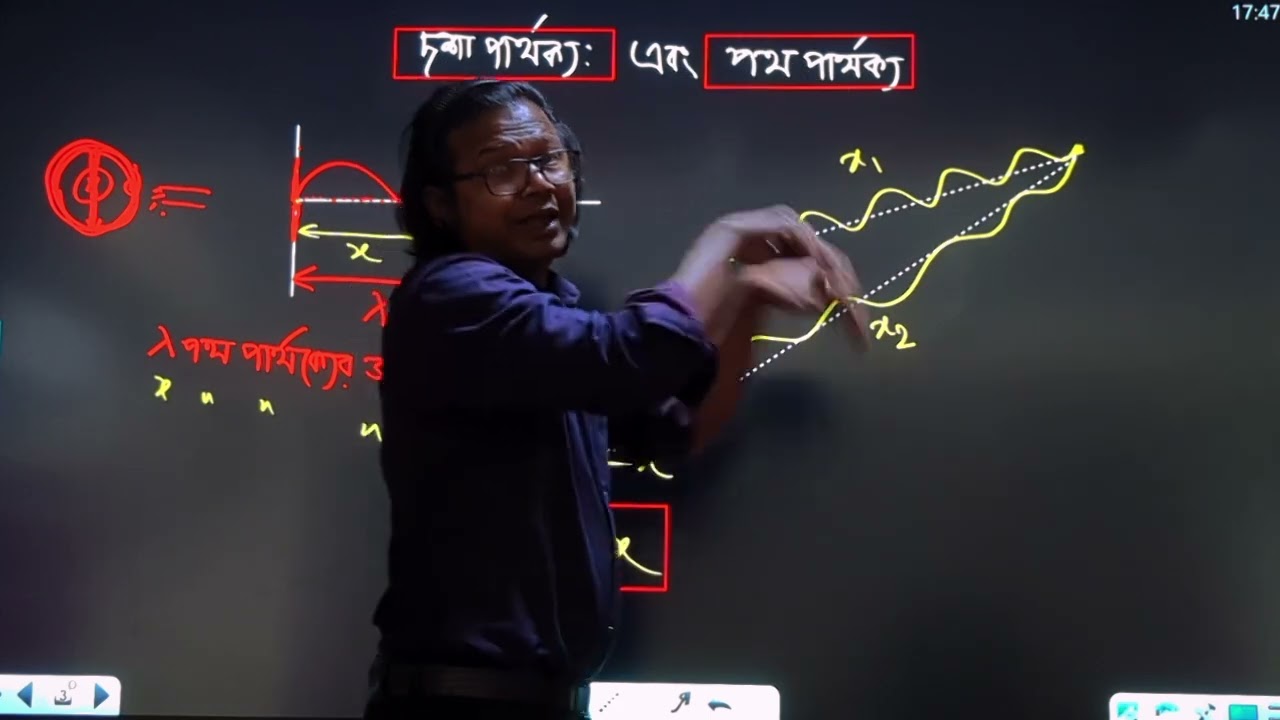 17:47
দশা পার্থক্য: এবং পথ পার্থক্য
x₁
x
λ
x₂
λ পথ পার্থক্যের
x " "
"
x
x
3